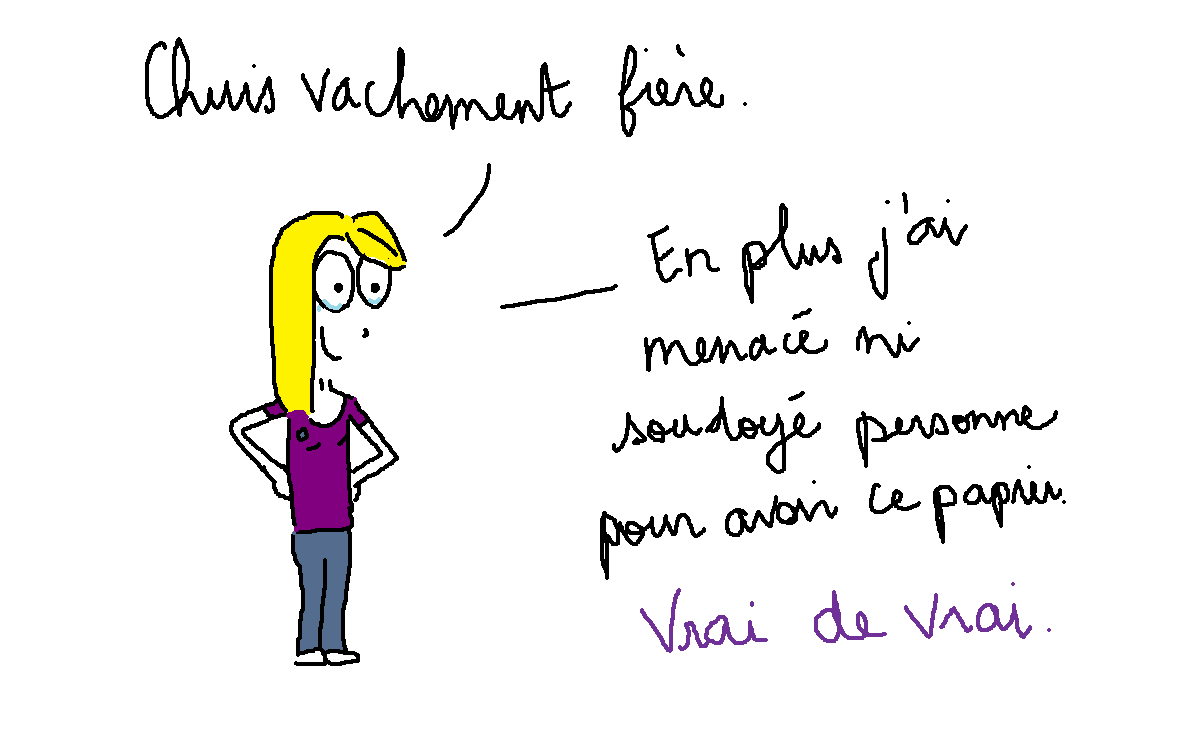 Chuis vachement fière.
En plus j'ai
menacé ni
soudoyé personne
pour avoir ce papier.
Vrai de vrai.